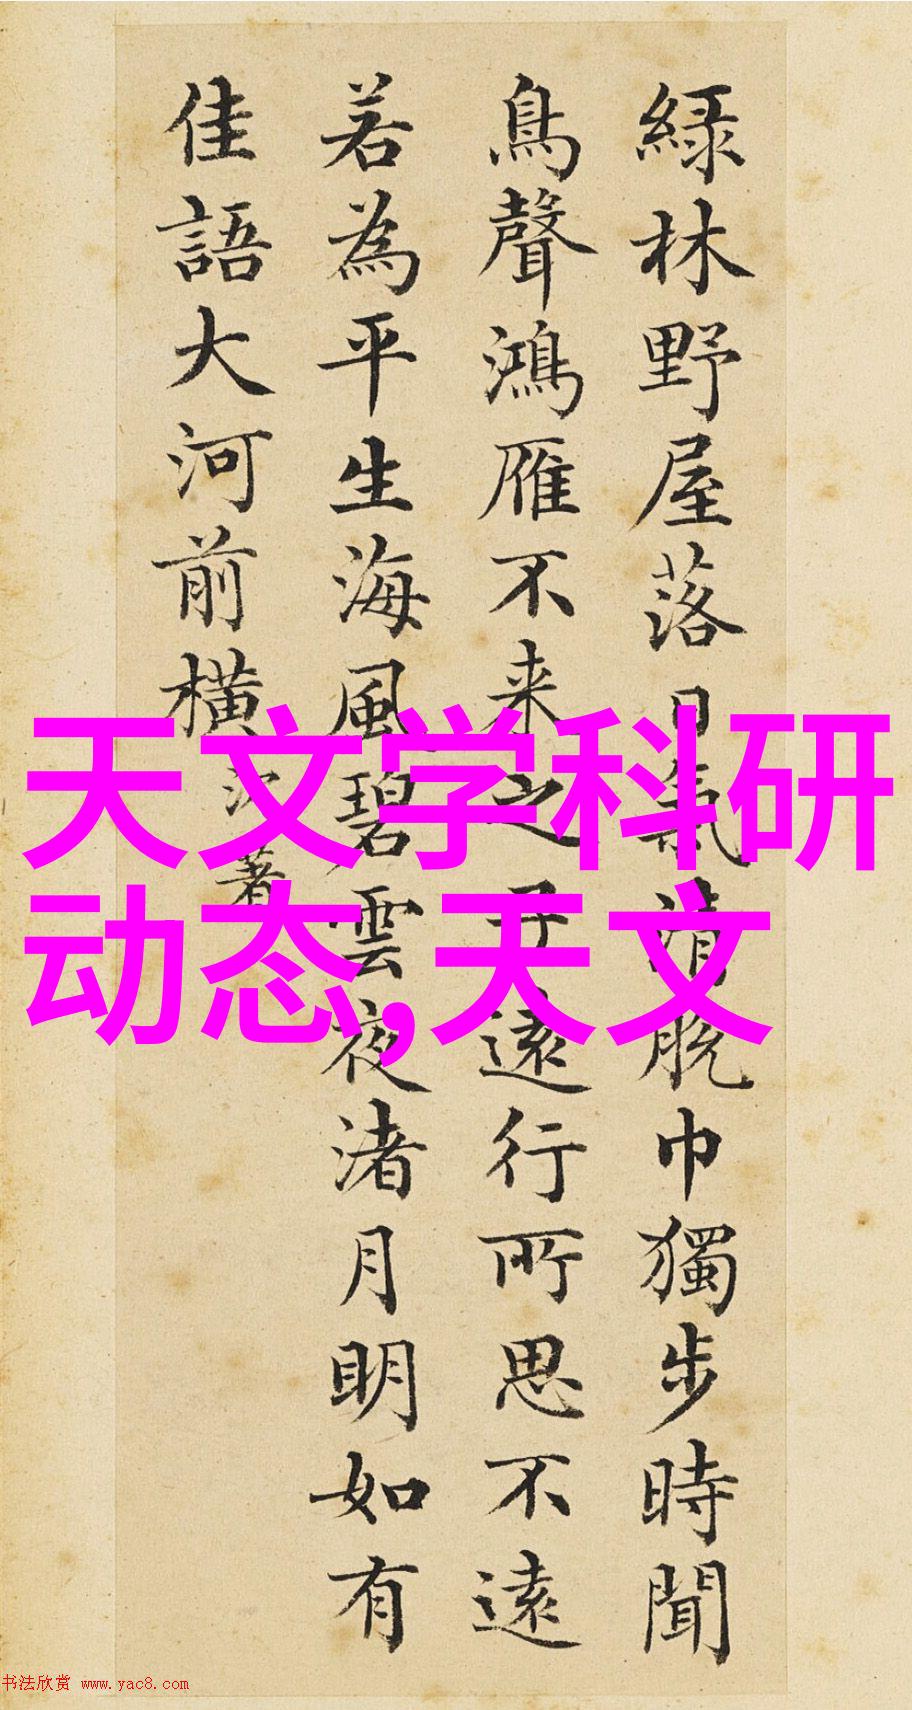 緑林野屋落日氣清脫巾獨步時聞
鳥聲鴻雁不来之子遠行所思不遠
若為平生海風碧雲夜渚月明如有
佳語大河前橫
沈著
天文学科研
动态,天文
书法欣赏 www.yac8.com